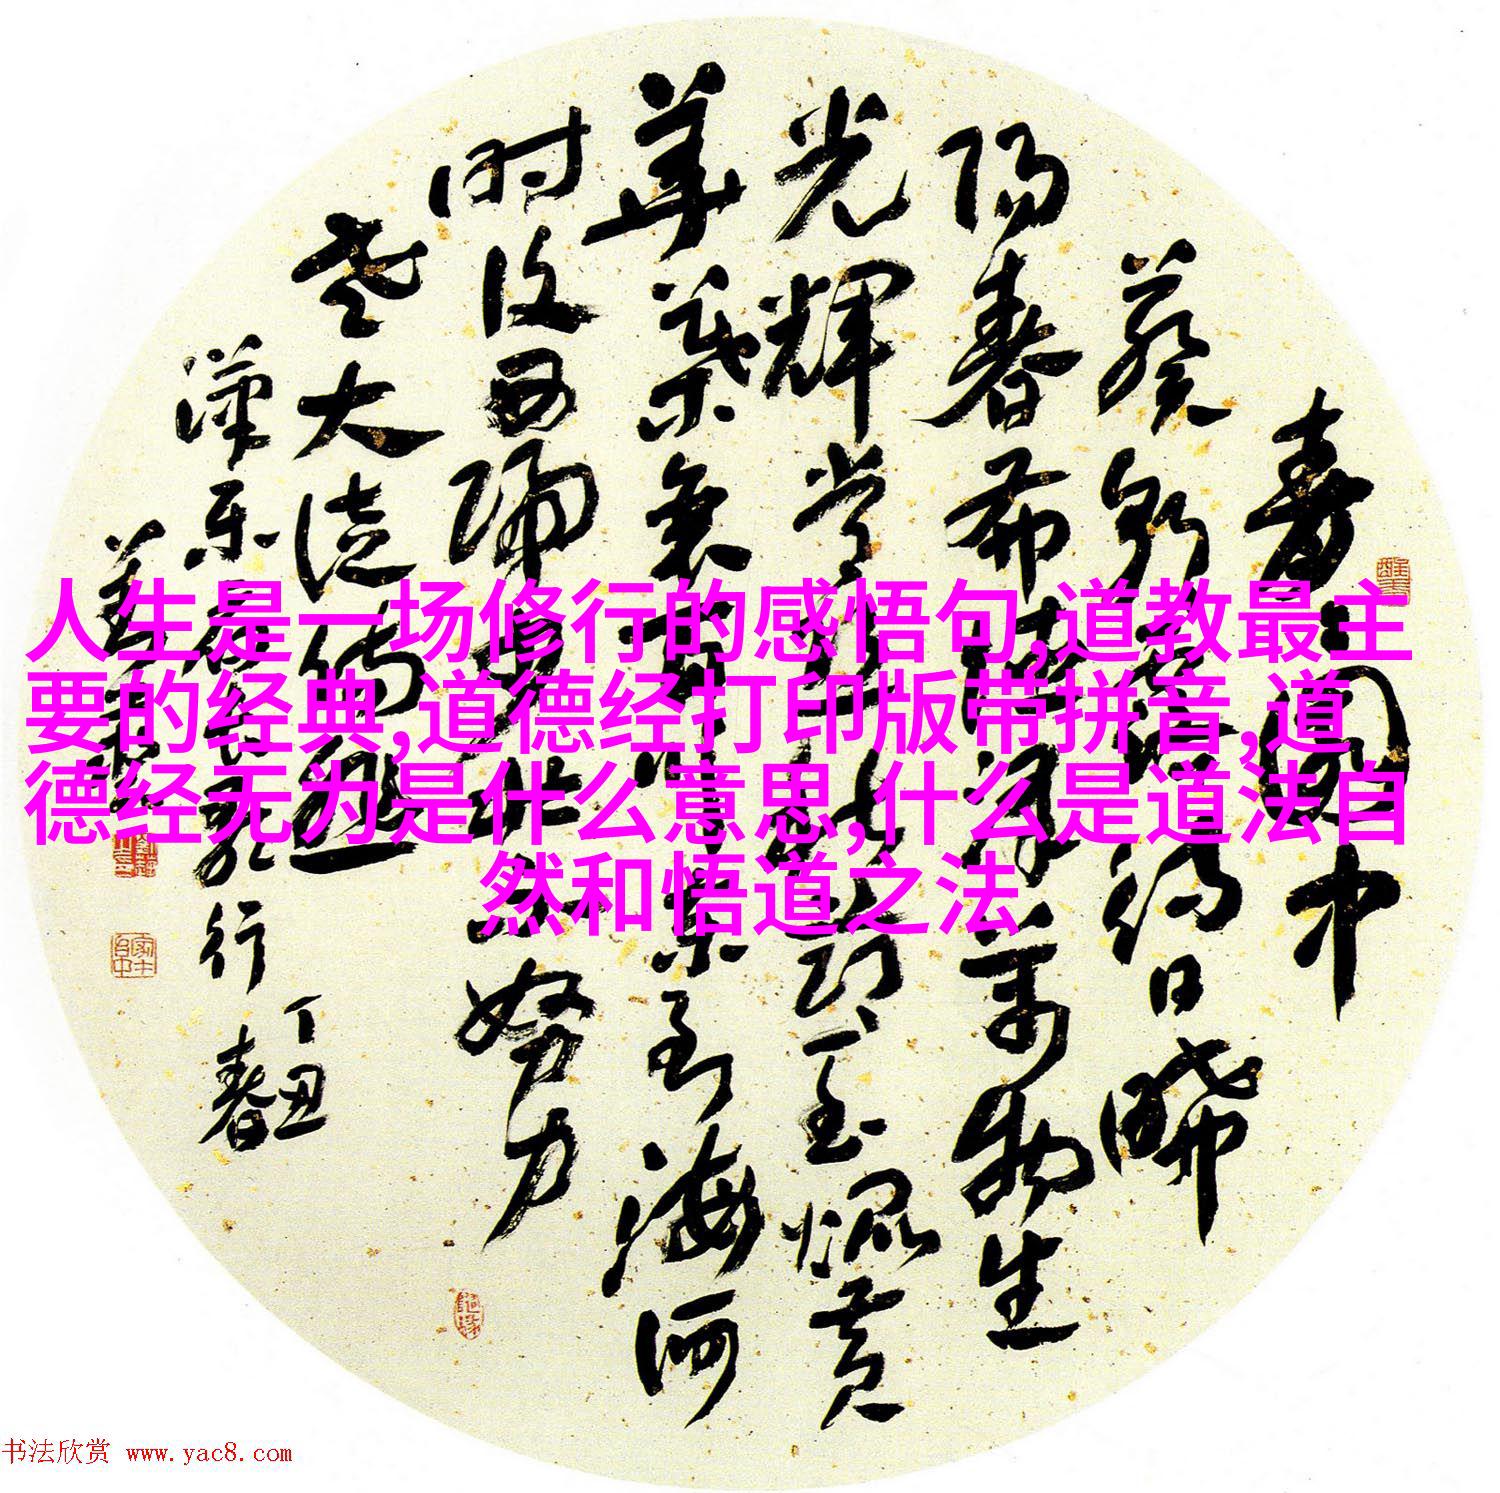 青青園中
葵朝露待日晞
阳春布德澤万物生
光輝常恐秋節至焜黄
華葉衰百川東到海何
时復西歸少壮不努力
老大徒傷悲
漢乐府長歌行
丁丑
春
人生是一场修行的感悟句,道教最主
要的经典,道德经打印版带拼音,道
德经无为是什么意思,什么是道法自
然和悟道之法
书法欣赏 www.yac8.com